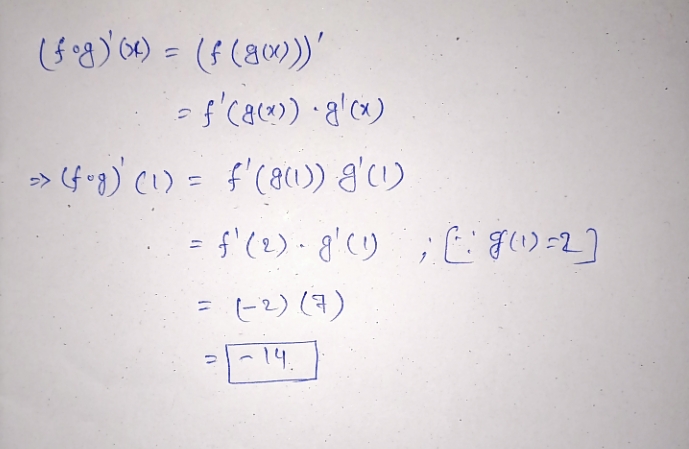 (f∘g)'(x) = (f(g(x)))'
= f'(g(x)) · g'(x)
=> (f∘g)'(1) = f'(g(1)) g'(1)
= f'(2) · g'(1) ; [∵ g(1)=2]
= (-2) (7)
= -14